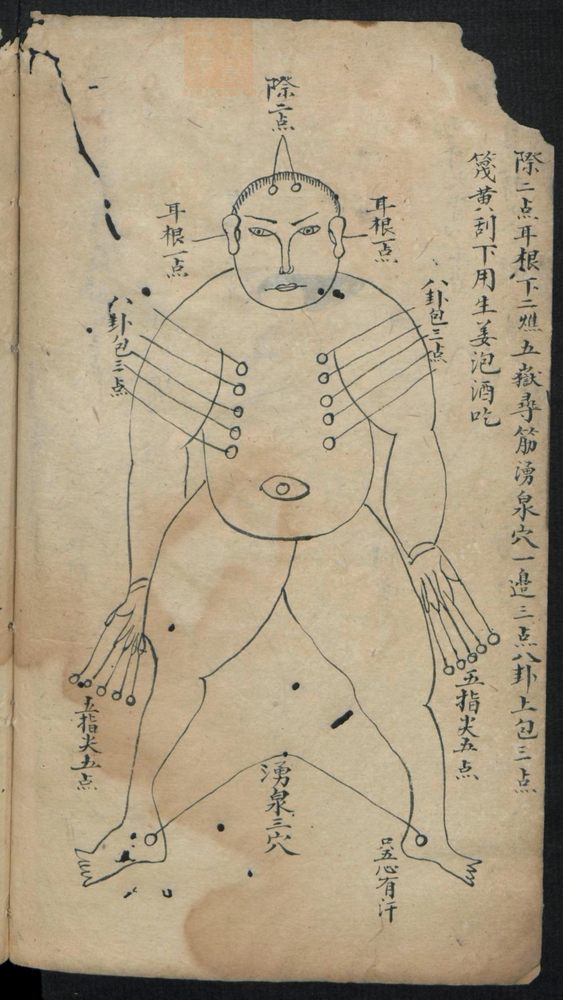 際二点耳根下二燋五嶽尋筋湧泉穴一邉三点八卦上包三点
篾黄刮下用生姜泡酒吃
際二点
耳根一点
耳根一点
八卦包三点
八卦包三点
五指尖五点
五指尖五点
湧泉三穴
五心有汗